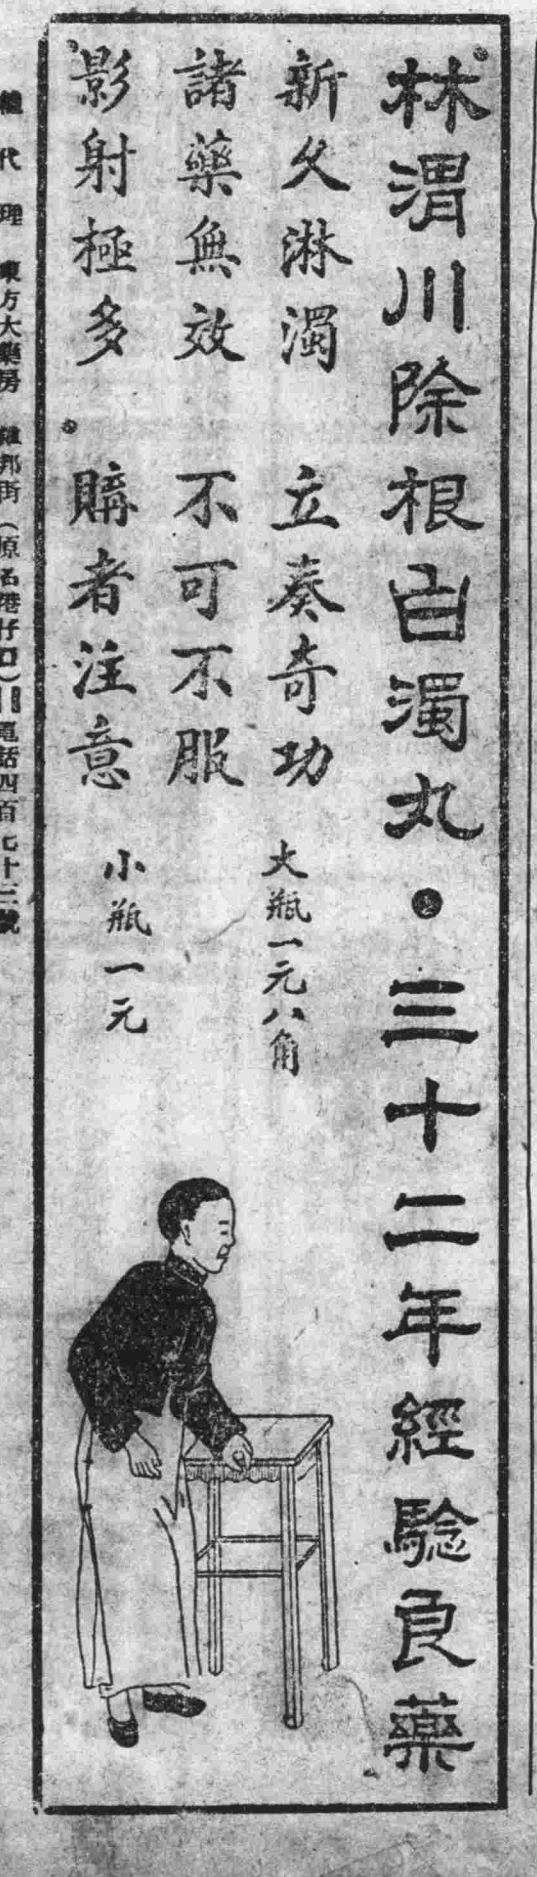 林渭川除根白濁丸•三十二年經驗良藥
新久淋濁 立奏奇功
諸藥無效 不可不服
影射極多 購者注意
大瓶一元八角
小瓶一元
總代理 東方大藥房 鎮邦街(原名港仔口)電話四百七十三號